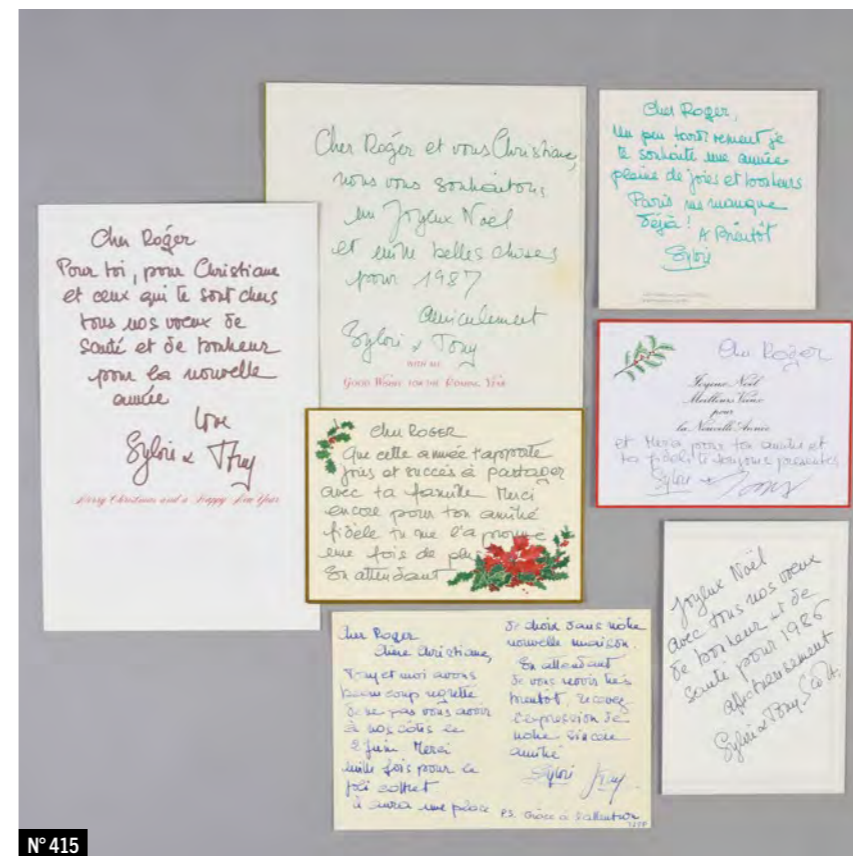 Cher Roger
Pour toi, pour Christiane
et ceux qui te sont chers
tous nos vœux de
santé et de bonheur
pour la nouvelle
année
Love
Sylvie & Tony
Merry Christmas and a Happy New Year
Cher Roger et vous Christiane,
nous vous souhaitons
un Joyeux Noël
et mille belles choses
pour 1987
Amicalement
Sylvie & Tony
WITH ALL
GOOD WISHES FOR THE COMING YEAR
Cher Roger,
Un peu tardivement je
te souhaite une année
pleine de joies et bonheurs
Paris me manque
déjà !
A Bientôt
Sylvie
Cher Roger
Joyeux Noël
Meilleurs Vœux
pour
la Nouvelle Année
et Merci pour ton amitié et
ta fidélité toujours présentes
Sylvie & Tony
Cher ROGER
Que cette année t'apporte
joies et succès à partager
avec ta famille Merci
encore pour ton amitié
fidèle tu me l'a prouvé
une fois de plus
En attendant
Cher Roger
Chère Christiane,
Tony et moi avons
beaucoup regretté
de ne pas vous avoir
à nos côtés le
2 Juin Merci
mille fois pour le
joli coffret
il aura une place
de choix dans notre
nouvelle maison.
En attendant
de vous revoir très
bientôt, recevez
l'expression de
notre sincère
amitié
Sylvie Tony
P.S. Grâce à l'attention
Joyeux Noël
avec tous nos vœux
de bonheur et de
santé pour 1986
affectueusement
Sylvie & Tony Scotti.
N° 415